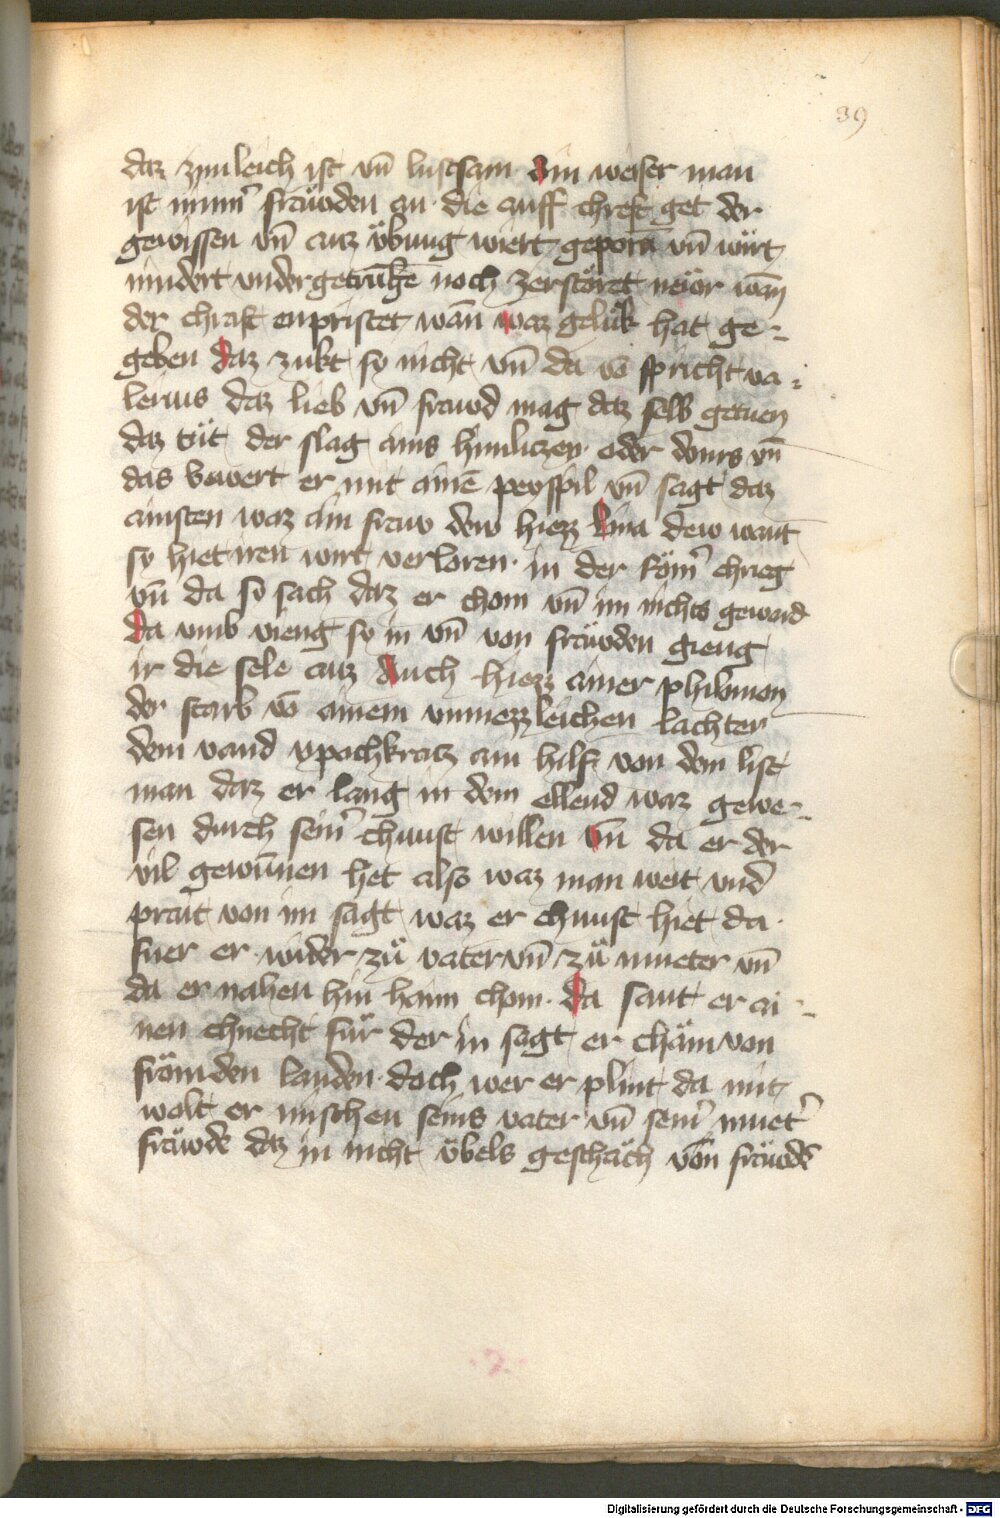 39
daz zimleich ist vn̄ lustsam ain weiser man
ist nimm̄ fräwden an die auff chreft get der
gewissen vn̄ auz übung wiert geporn̄ vn̄ würt
nindert vndergetrükē noch zerstöret neür wan̄
der chraft enpristet wān waz gelük hat ge-
geben daz zukt sy nicht vn̄ da vō spricht va-
lerius daz lieb vn̄ frawd mag daz selb getuen
daz tüt der slag ains himlitzen oder donrs vn̄
das bewert er mit ainē peyspil vn̄ sagt daz
ainsten waz ain fraw dew hiezz lina dew want
sy hiet iren wirt verloren in der Röm̄ chrieg
vn̄ da sy sach daz er chom vn̄ im nichts geward
da vmb vieng sy in vn̄ von fräwden gieng
ir die sele auz Auch hiezz ainer philomon
der starb vō ainem vnmezzleichen lachter
dem vand ypochkratz ain hilf von dem list
man daz er lang in dem ellend waz gewe-
sen durch sein̄ chunst willen vn̄ da er der
vil gewūnnen het also waz man weit vnd
prait von im sagt waz er chunst hiet da
fuer er wider zů vater vn̄ zů mueter vn̄
da er nahen hin haim chom da sant er ai-
nen chnecht für der in sagt er chäm von
frömden landen doch wer er plint da mit
wolt er mischen seins vater vn̄ sein̄ muet̄
fräwde daz in nicht übels geschäch von fräwdē
Digitalisierung gefördert durch die Deutsche Forschungsgemeinschaft - DFG